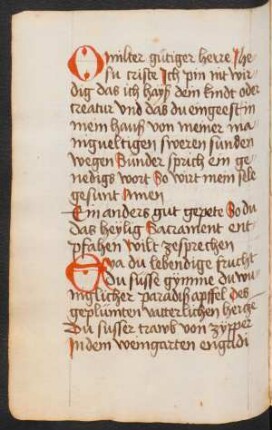 O milter gütiger herre Jhe
su criste Ich pin nit wir
dig das ich hayß dein kindt oder
creatur vnd das du eingeest in
mein hauß von meiner ma
nigueltigen sweren sunden
wegen Sunder sprich ein ge
nedigs wort So wirt mein sele
gesunt Amen
Ein anders gut gepete So du
das heylig Sacrament ent
pfahen wilt zesprechen
O du lebendige frucht
Du süsse gymme du wu
niglicher paradis apffel Des
geplümten vatterlichen hercze
Du susser trawb von zypper
In dem weingarten engadi